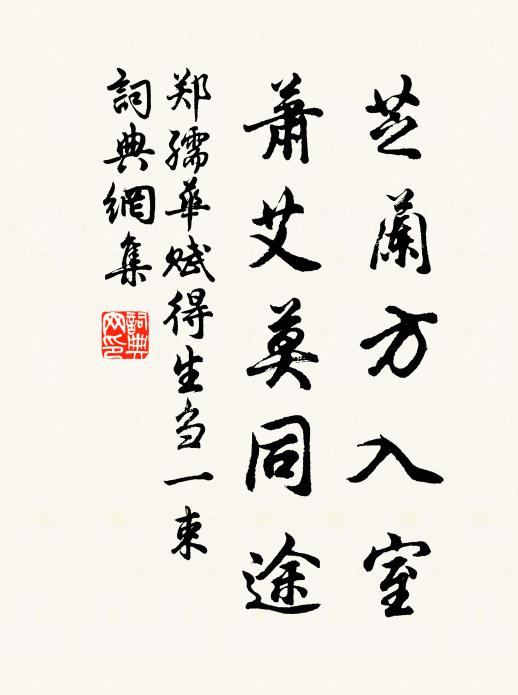 芝蘭方入室
蕭艾莫同途
郑孺華赋得生刍一束
詞典網集
詞典網印